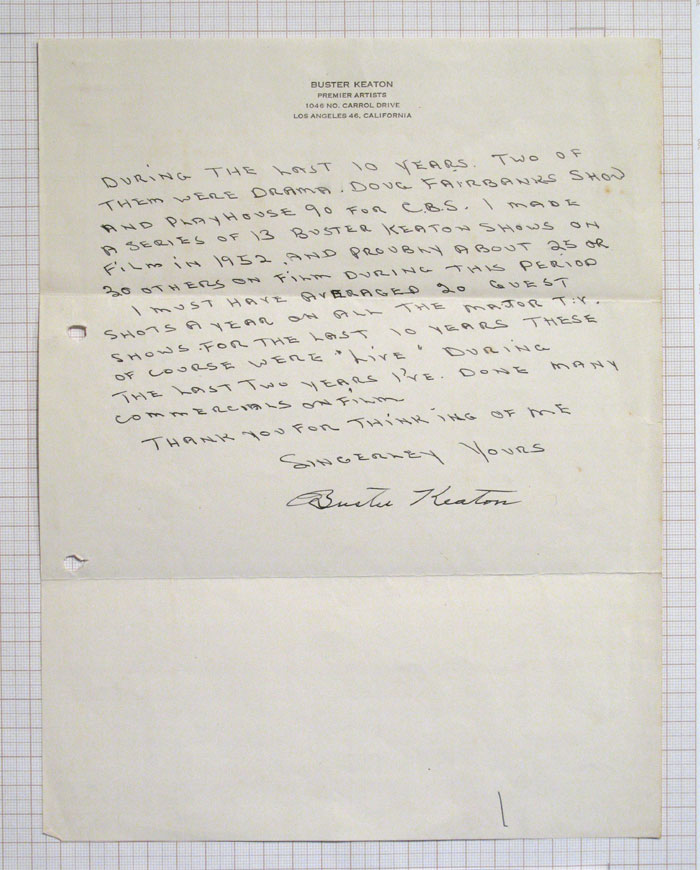 BUSTER KEATON
PREMIER ARTISTS
1046 NO. CARROL DRIVE
LOS ANGELES 46, CALIFORNIA
DURING THE LAST 10 YEARS. TWO OF
THEM WERE DRAMA. DOUG FAIRBANKS SHOW
AND PLAYHOUSE 90 FOR C.B.S. I MADE
A SERIES OF 13 BUSTER KEATON SHOWS ON
FILM IN 1952. AND PROUBLY ABOUT 25 OR
30 OTHERS ON FILM DURING THIS PERIOD
I MUST HAVE AVERAGED 20 GUEST
SHOTS A YEAR ON ALL THE MAJOR T.V.
SHOWS. FOR THE LAST 10 YEARS THESE
OF COURSE WERE "LIVE" DURING
THE LAST TWO YEARS I'VE. DONE MANY
COMMERCIALS ON FILM
THANK YOU FOR THINKING OF ME
SINCERLEY YOURS
Buster Keaton